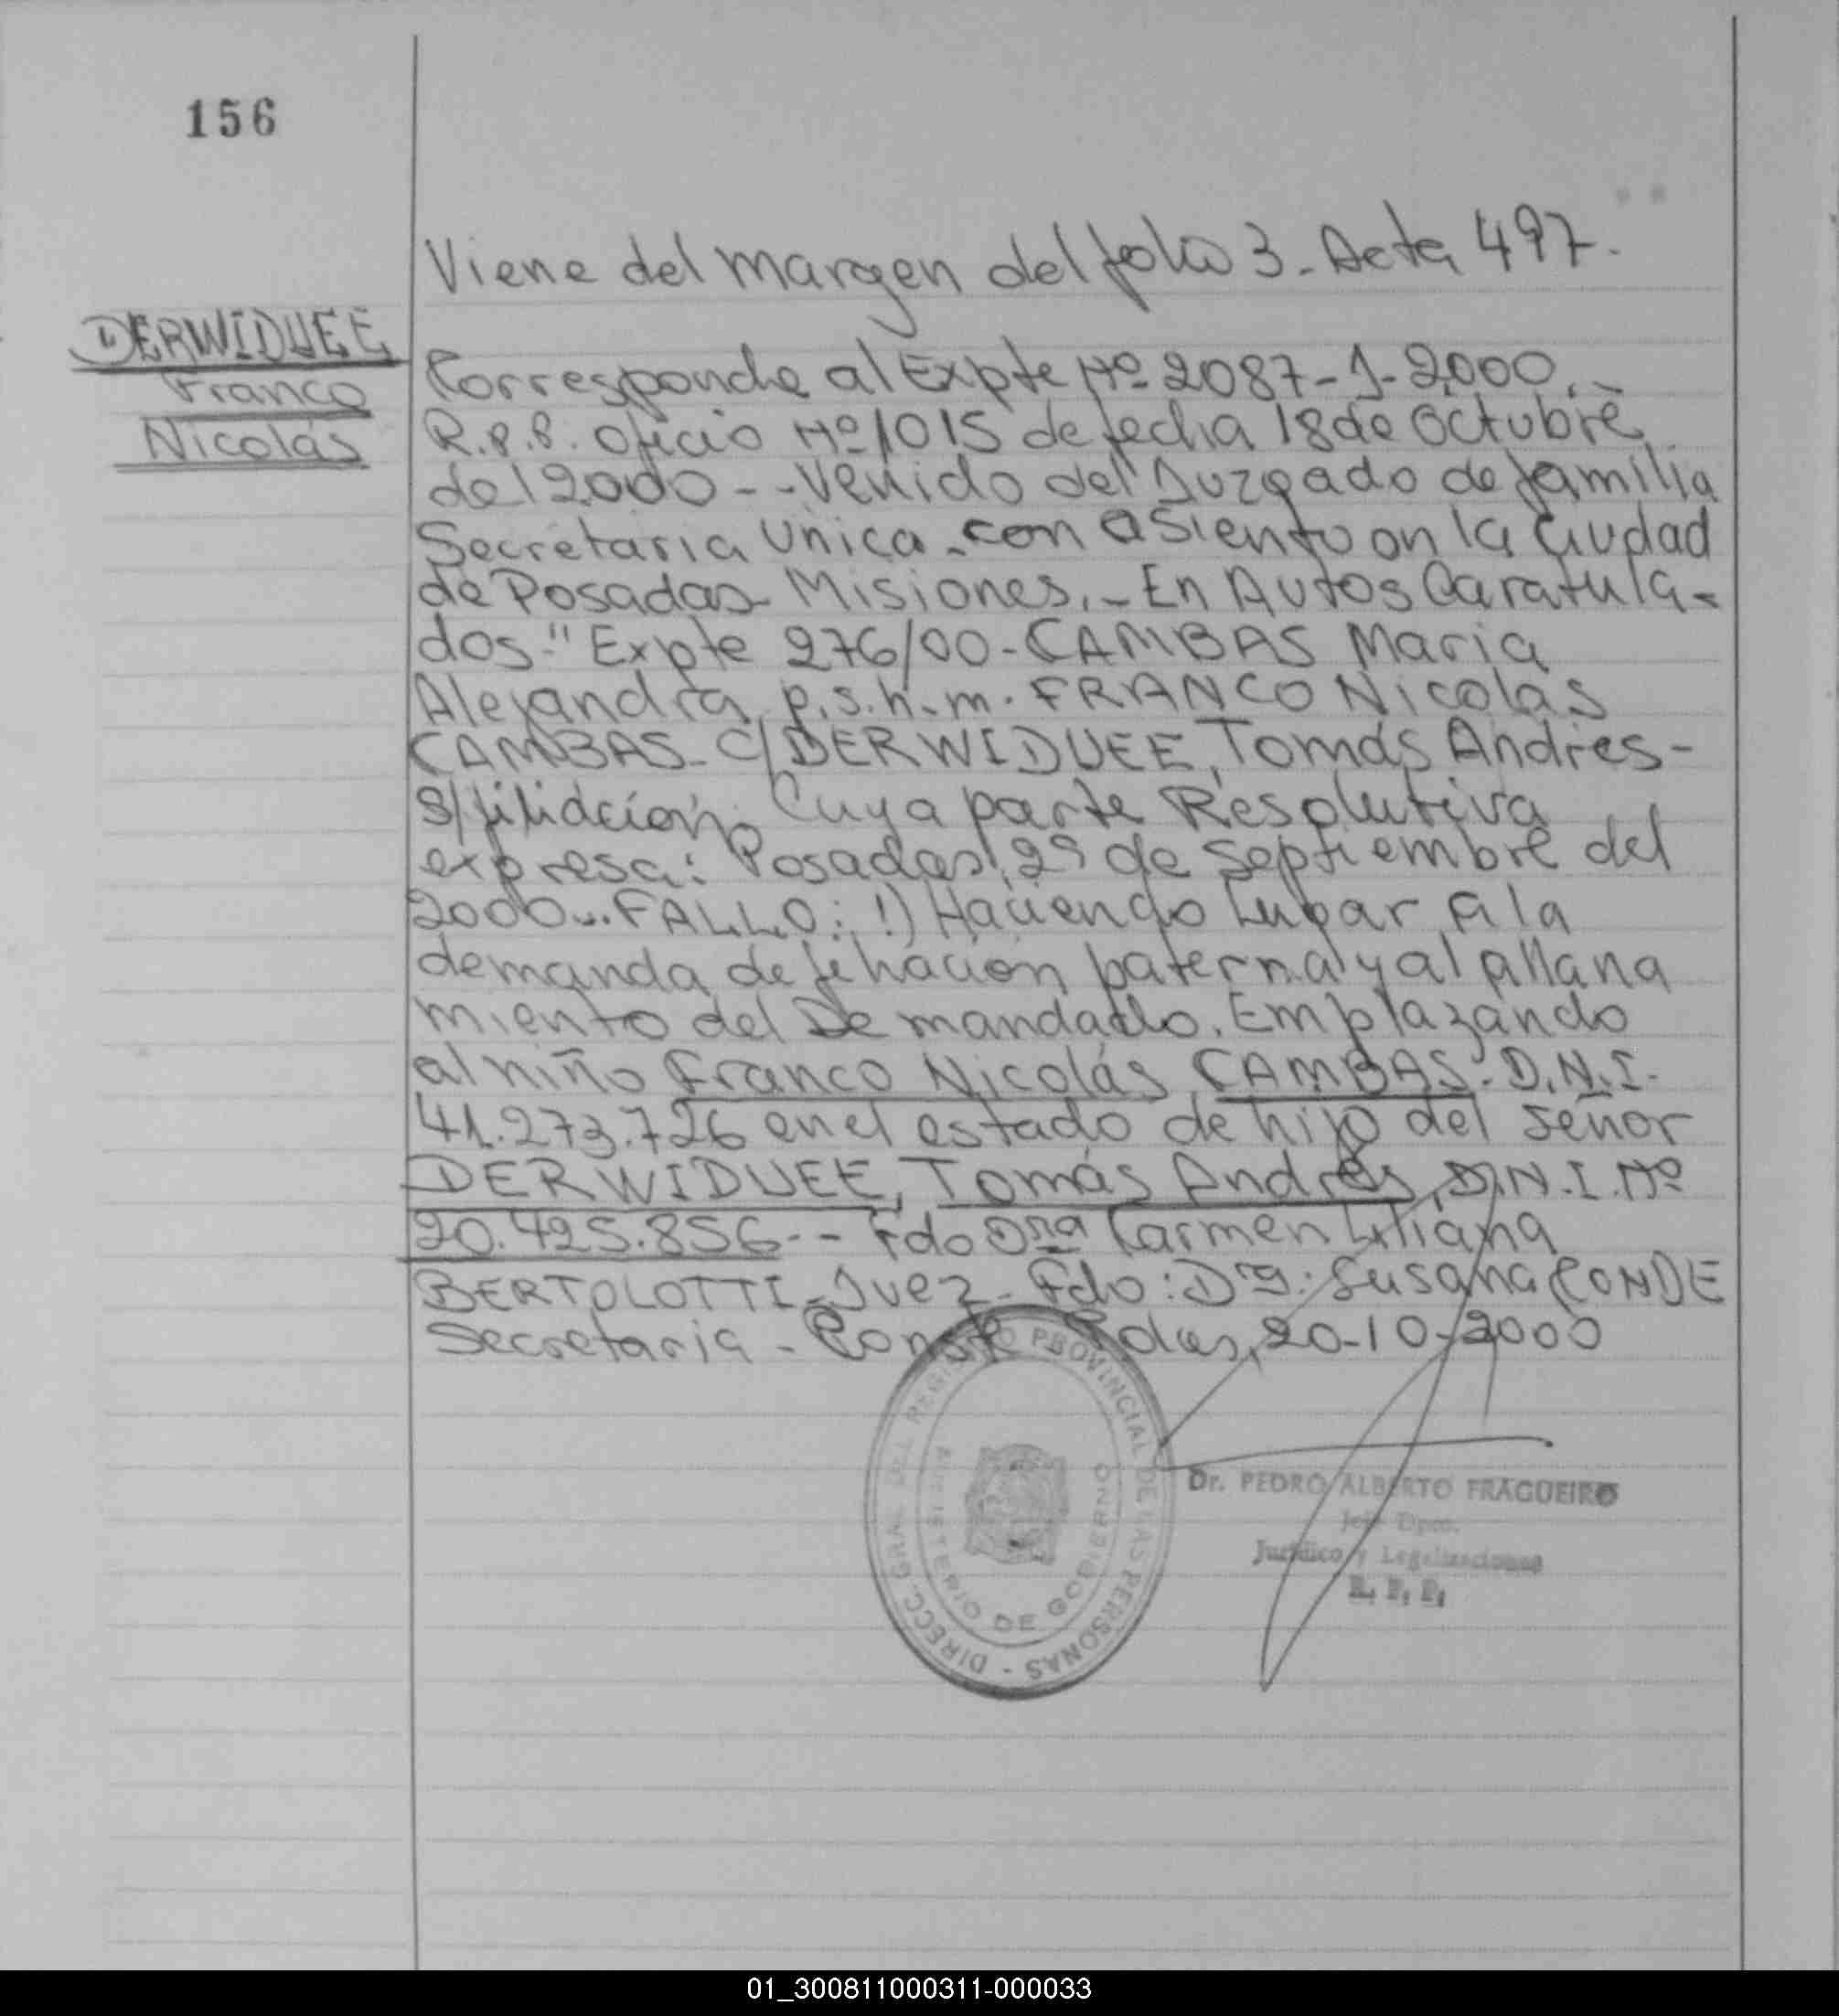 156
Viene del margen del folio 3. Acta 497.
DERWIDUEE
Franco
Nicolás
Corresponde al Expte Nº 2087-J-2000.-
R.P.P. Oficio Nº 1015 de fecha 18 de Octubre
del 2000 -- Venido del Juzgado de familia
Secretaria Unica - con asiento en la Ciudad
de Posadas Misiones.- En Autos Caratula-
dos "Expte 276/00 - CAMBAS Maria
Alejandra p.s.h.m. FRANCO Nicolás
CAMBAS - C/ DERWIDUEE, Tomás Andres -
S/filiación. Cuya parte Resolutiva
expresa: Posadas, 29 de Septiembre del
2000... FALLO: 1) Haciendo Lugar A la
demanda de filiación paterna y al Allana
miento del Demandado. Emplazando
al niño Franco Nicolás CAMBAS. D.N.I.
41.273.726 en el estado de hijo del señor
DERWIDUEE, Tomás Andrés, D.N.I. Nº
20.425.856 -- Fdo Dra Carmen Liliana
BERTOLOTTI - Juez - Fdo: Dra. Susana CONDE
Secretaria - Conste Pdas, 20-10-2000
DIRECC. GRAL. DEL REGISTRO PROVINCIAL DE LAS PERSONAS -
MINISTERIO DE GOBIERNO
Dr. PEDRO ALBERTO FRAGUEIRO
Jefe Dpto.
Jurídico y Legalizaciones
R. P. P.
01_300811000311-000033